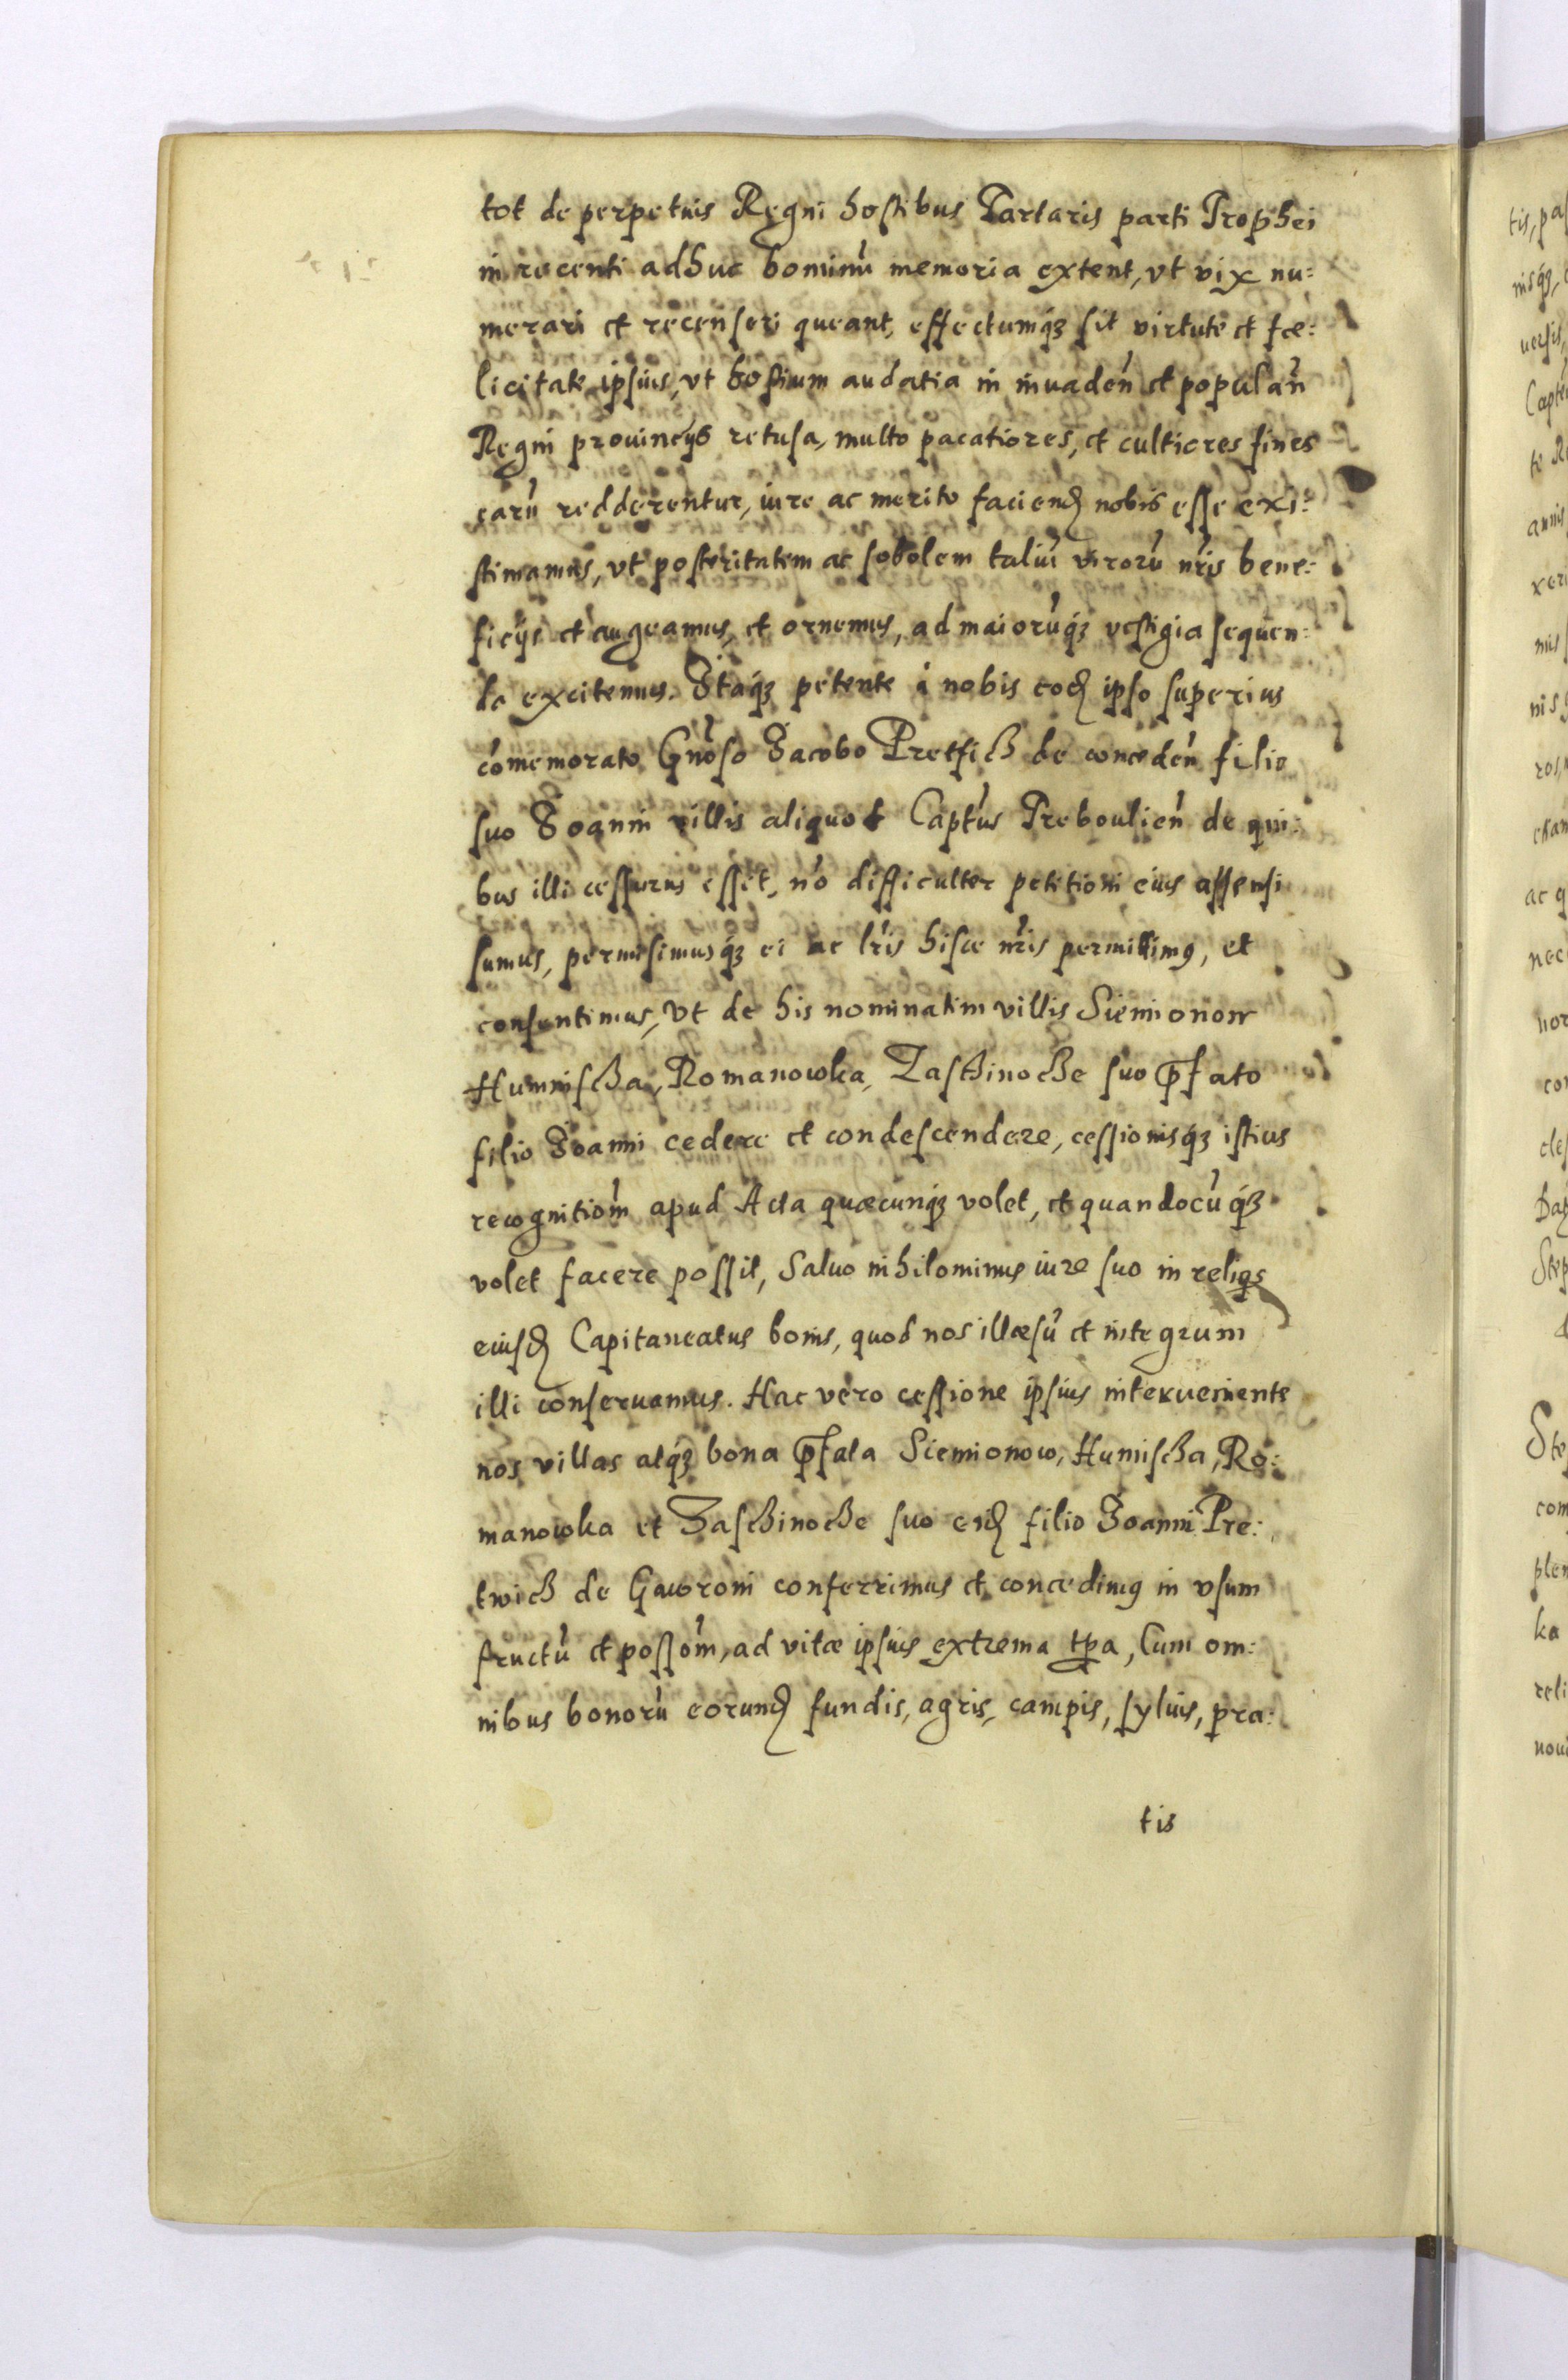 tot de perpetuis Regni hostibus Tartaris parti Trophei
in recenti adhuc hominũ memoria extent, vt vix nu:
merari et recenseri queant, effectumqꝫ sit virtute et fœ:
licitate ipsius, vt hostium audatia in inuadeñ et populañ
Regni prouincijs retusa, multo pacatiores, et cultiores fines
earũ redderentur, iure ac merito faciend nobis esse exi:
stimamus, vt posteritatem ac sobolem taliũ virorũ nr̃is bene:
ficijs et augeamus, et ornemus, ad maiorũqꝫ vestigia sequen:
da excitemus. Itaqꝫ petente à nobis eod ipso superius
cõmemorato Gnõso Iacobo Pretfich de concedeñ filio
suo Ioanni villis aliquot Captũs Trebouliẽn de qui:
bus illi cessurus esset, nõ difficulter petitioni eius assensi
sumus, permisimusqꝫ ei ac lr̃is hisce nr̃is permittimꝯ, et
consentimus, Vt de his nominatim villis Siemionow
Humnischa, Romanowka, Zaschinoche suo p̃fato
filio Ioanni cedere et condescendere, cessionisqꝫ istius
recognitiom̃ apud Acta quæcunqꝫ volet, et quandocũqꝫ
volet facere possit, Saluo nihilominus iure suo in reliqs
eiusd Capitaneatus bonis, quod nos illæsũ et integrum
illi conseruamus. Hac vero cessione ipsius interueniente
nos villas atqꝫ bona p̃fata Siemionow, Humischa, Ro:
manowka et Zaschinoche suo eid filio Ioanni Pre:
twich de Gawroni conferrimus et concedimꝯ in vsum
fructũ et possom̃, ad vitæ ipsius extrema tp̃a, Cum om:
nibus bonorũ eorund fundis, agris, campis, syluis, pra:
tis